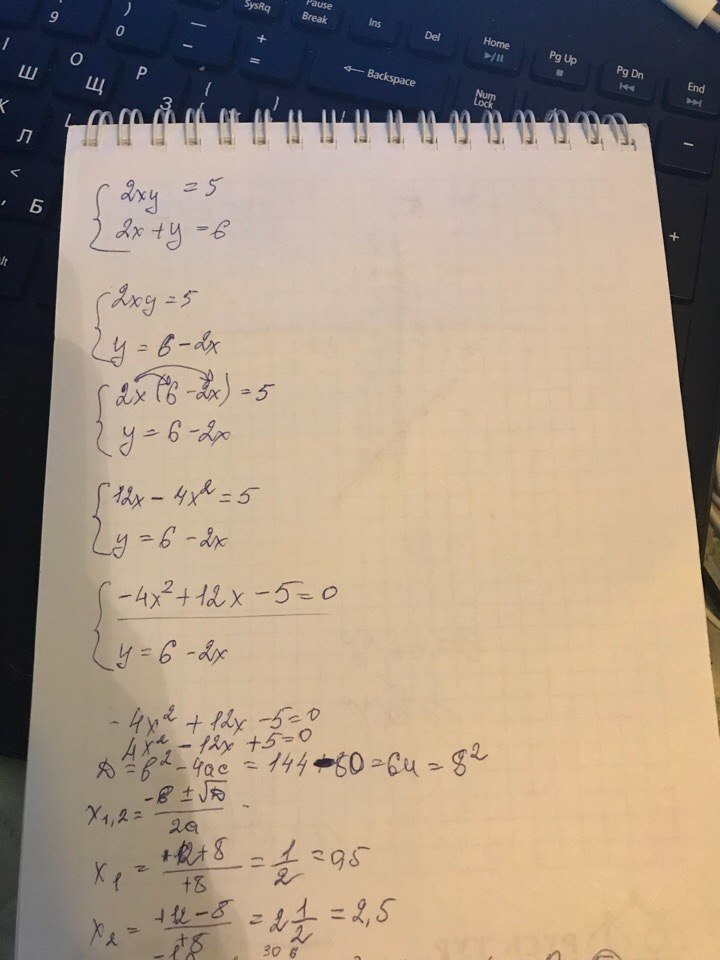 9 ) SysRq Pause Break Ins Del Home Pg Up Pg Dn End
0 - + = ← Backspace Num Lock
Ш О Щ Р З { }
К Л
< Б
lt
+
{ 2xy = 5
2x + y = 6
{ 2xy = 5
y = 6 - 2x
{ 2x (6 - 2x) = 5
y = 6 - 2x
{ 12x - 4x² = 5
y = 6 - 2x
{ -4x² + 12x - 5 = 0
y = 6 - 2x
-4x² + 12x - 5 = 0
4x² - 12x + 5 = 0
D = b² - 4ac = 144 - 80 = 64 = 8²
x₁,₂ = (-b ± √D) / 2a
x₁ = (+12+8) / +8 = 1/2 = 0,5
x₂ = (+12-8) / +8 = 2 1/2 = 2,5